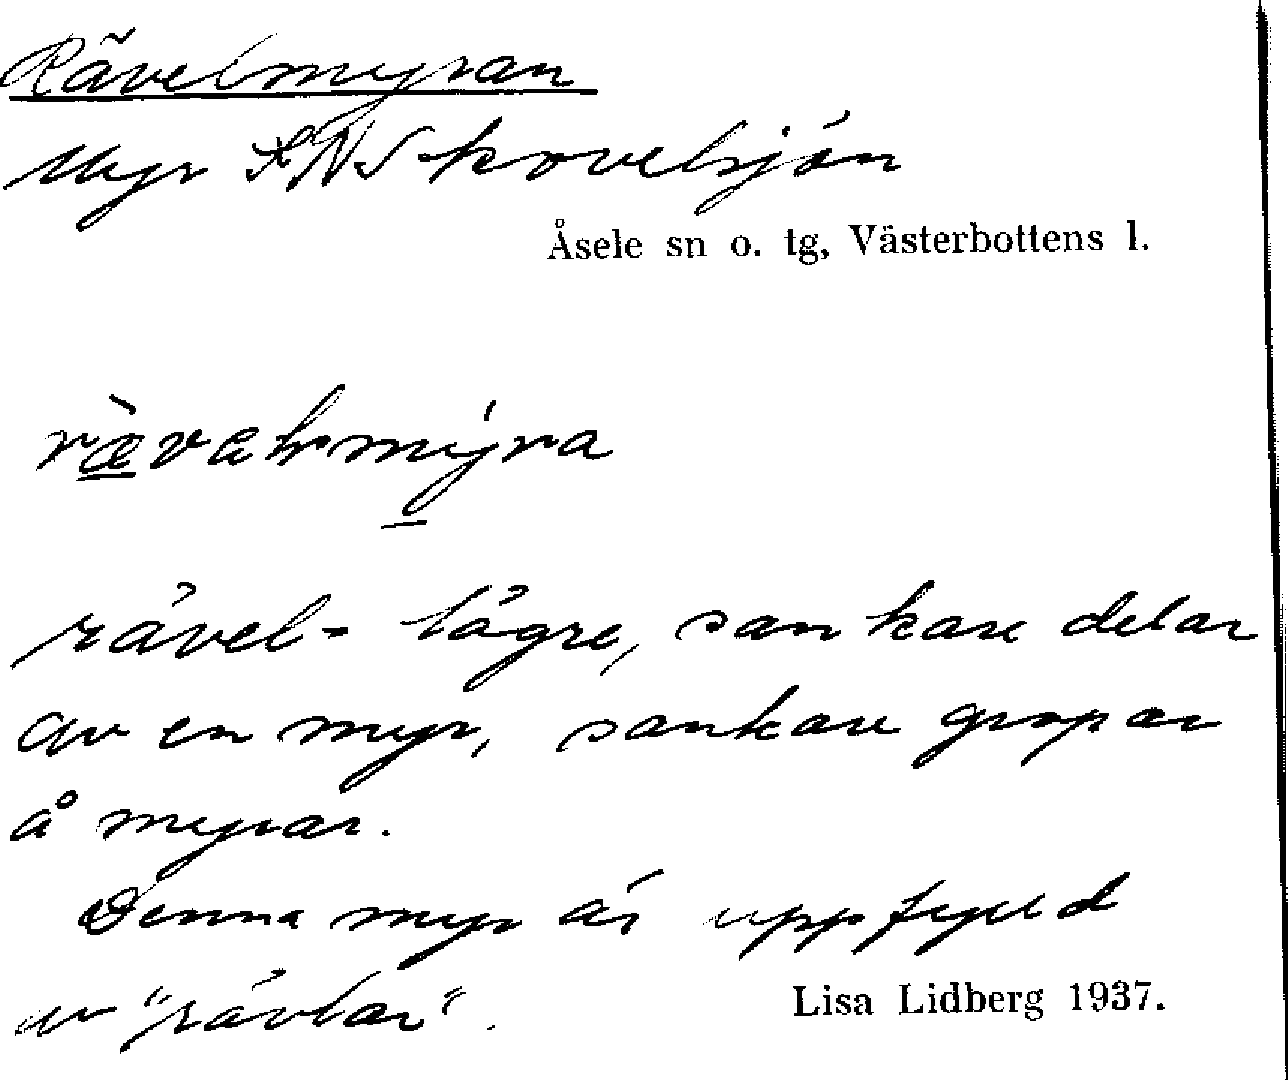 Rävelmyran
Myr S N Skovelsjön
Åsele sn o. tg, Västerbottens l.
rävel- lägre, sankare delar
av en myr, sankare gropar
å myrar.
Denna myr är uppfylld
av "rävlar".
Lisa Lidberg 1937.